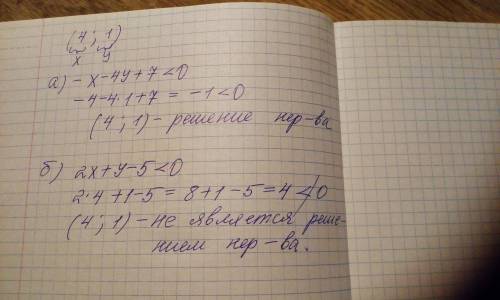 (4 ; 1)
x y
а) -x-4y+7<0
-4-4·1+7 = -1<0
(4 ; 1) - решение нер-ва
б) 2x+y-5<0
2·4+1-5 = 8+1-5=4≮0
(4 ; 1) - не является реше-
нием нер-ва.